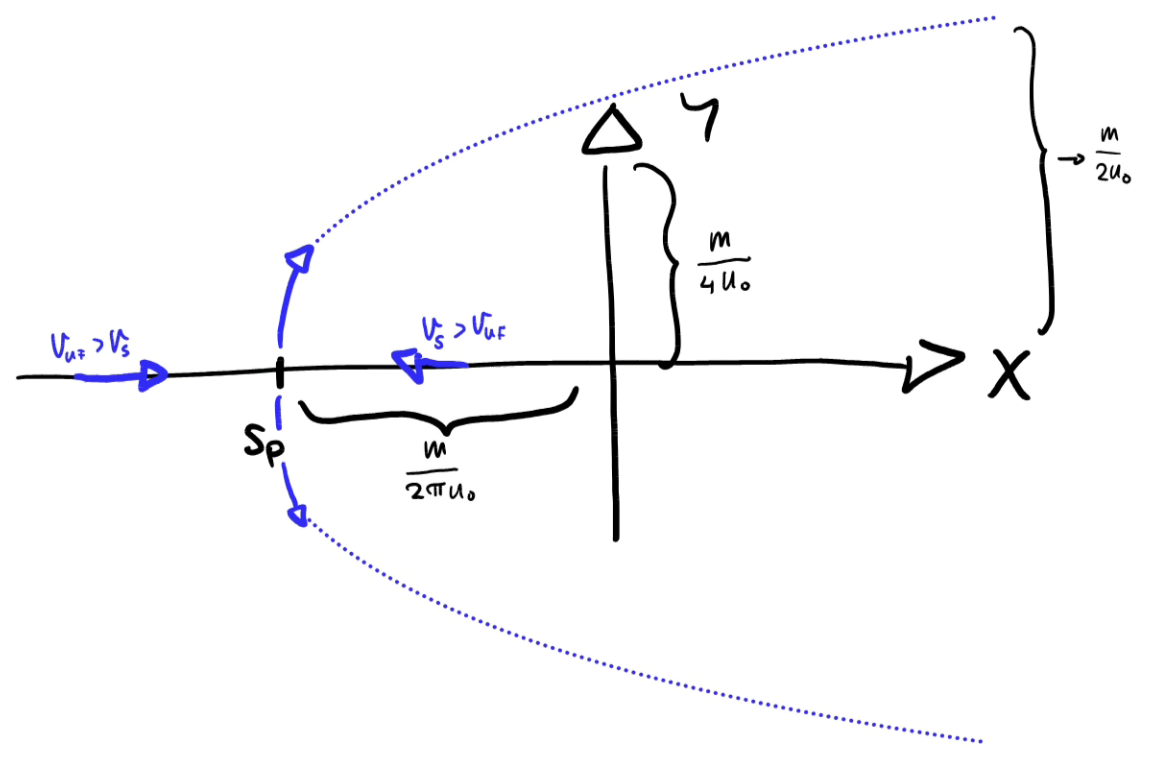 Y
→ m/2u₀
m/4u₀
V_uF > V_s
V_s > V_uF
X
S_p
m/2πu₀